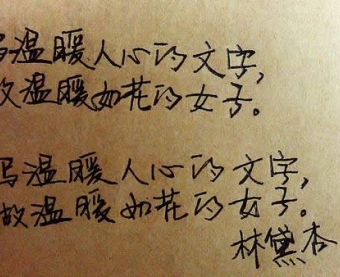 写温暖人心的文字,
做温暖如花的女子。
写温暖人心的文字,
做温暖如花的女子。
林黛杏